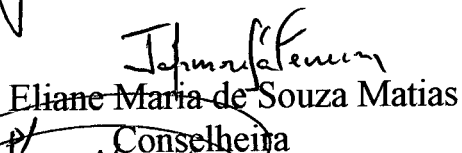 Eliane Maria de Souza Matias
P/ . Conselheira